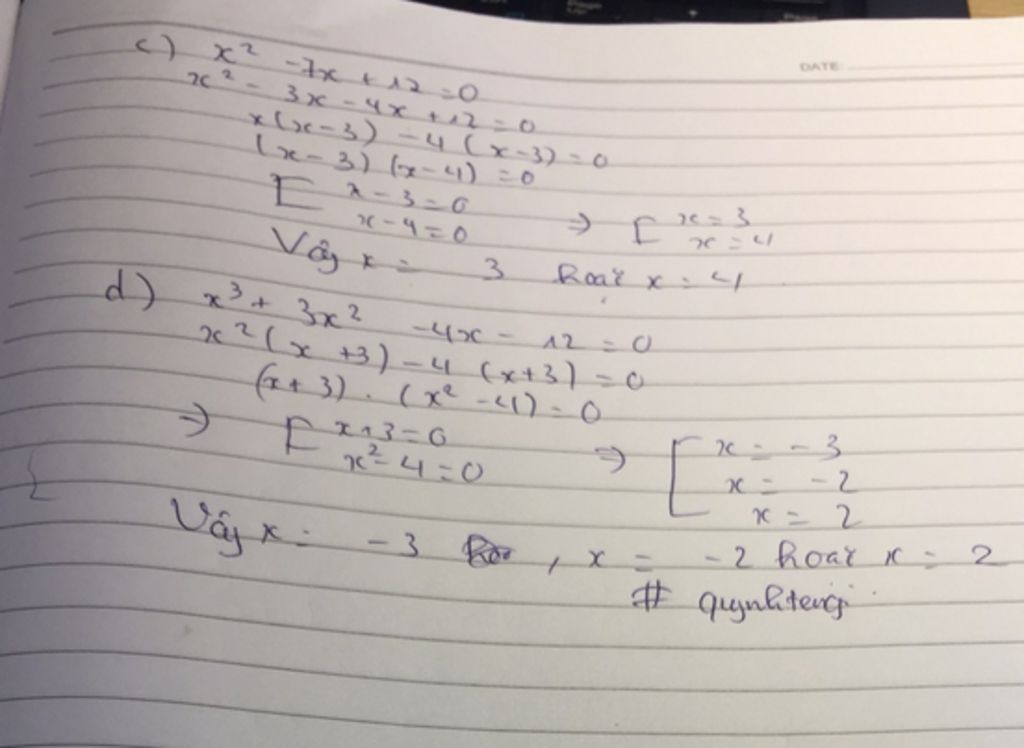 DATE:
c) x² - 7x + 12 = 0
x² - 3x - 4x + 12 = 0
x(x - 3) - 4(x - 3) = 0
(x - 3)(x - 4) = 0
[ x - 3 = 0
x - 4 = 0 => [ x = 3
x = 4
Vậy x = 3 hoặc x = 4
d) x³ + 3x² - 4x - 12 = 0
x²(x + 3) - 4(x + 3) = 0
(x + 3) . (x² - 4) = 0
=> [ x + 3 = 0
x² - 4 = 0 => [ x = -3
x = -2
x = 2
Vậy x = -3 , x = -2 hoặc x = 2
# quynhtengi